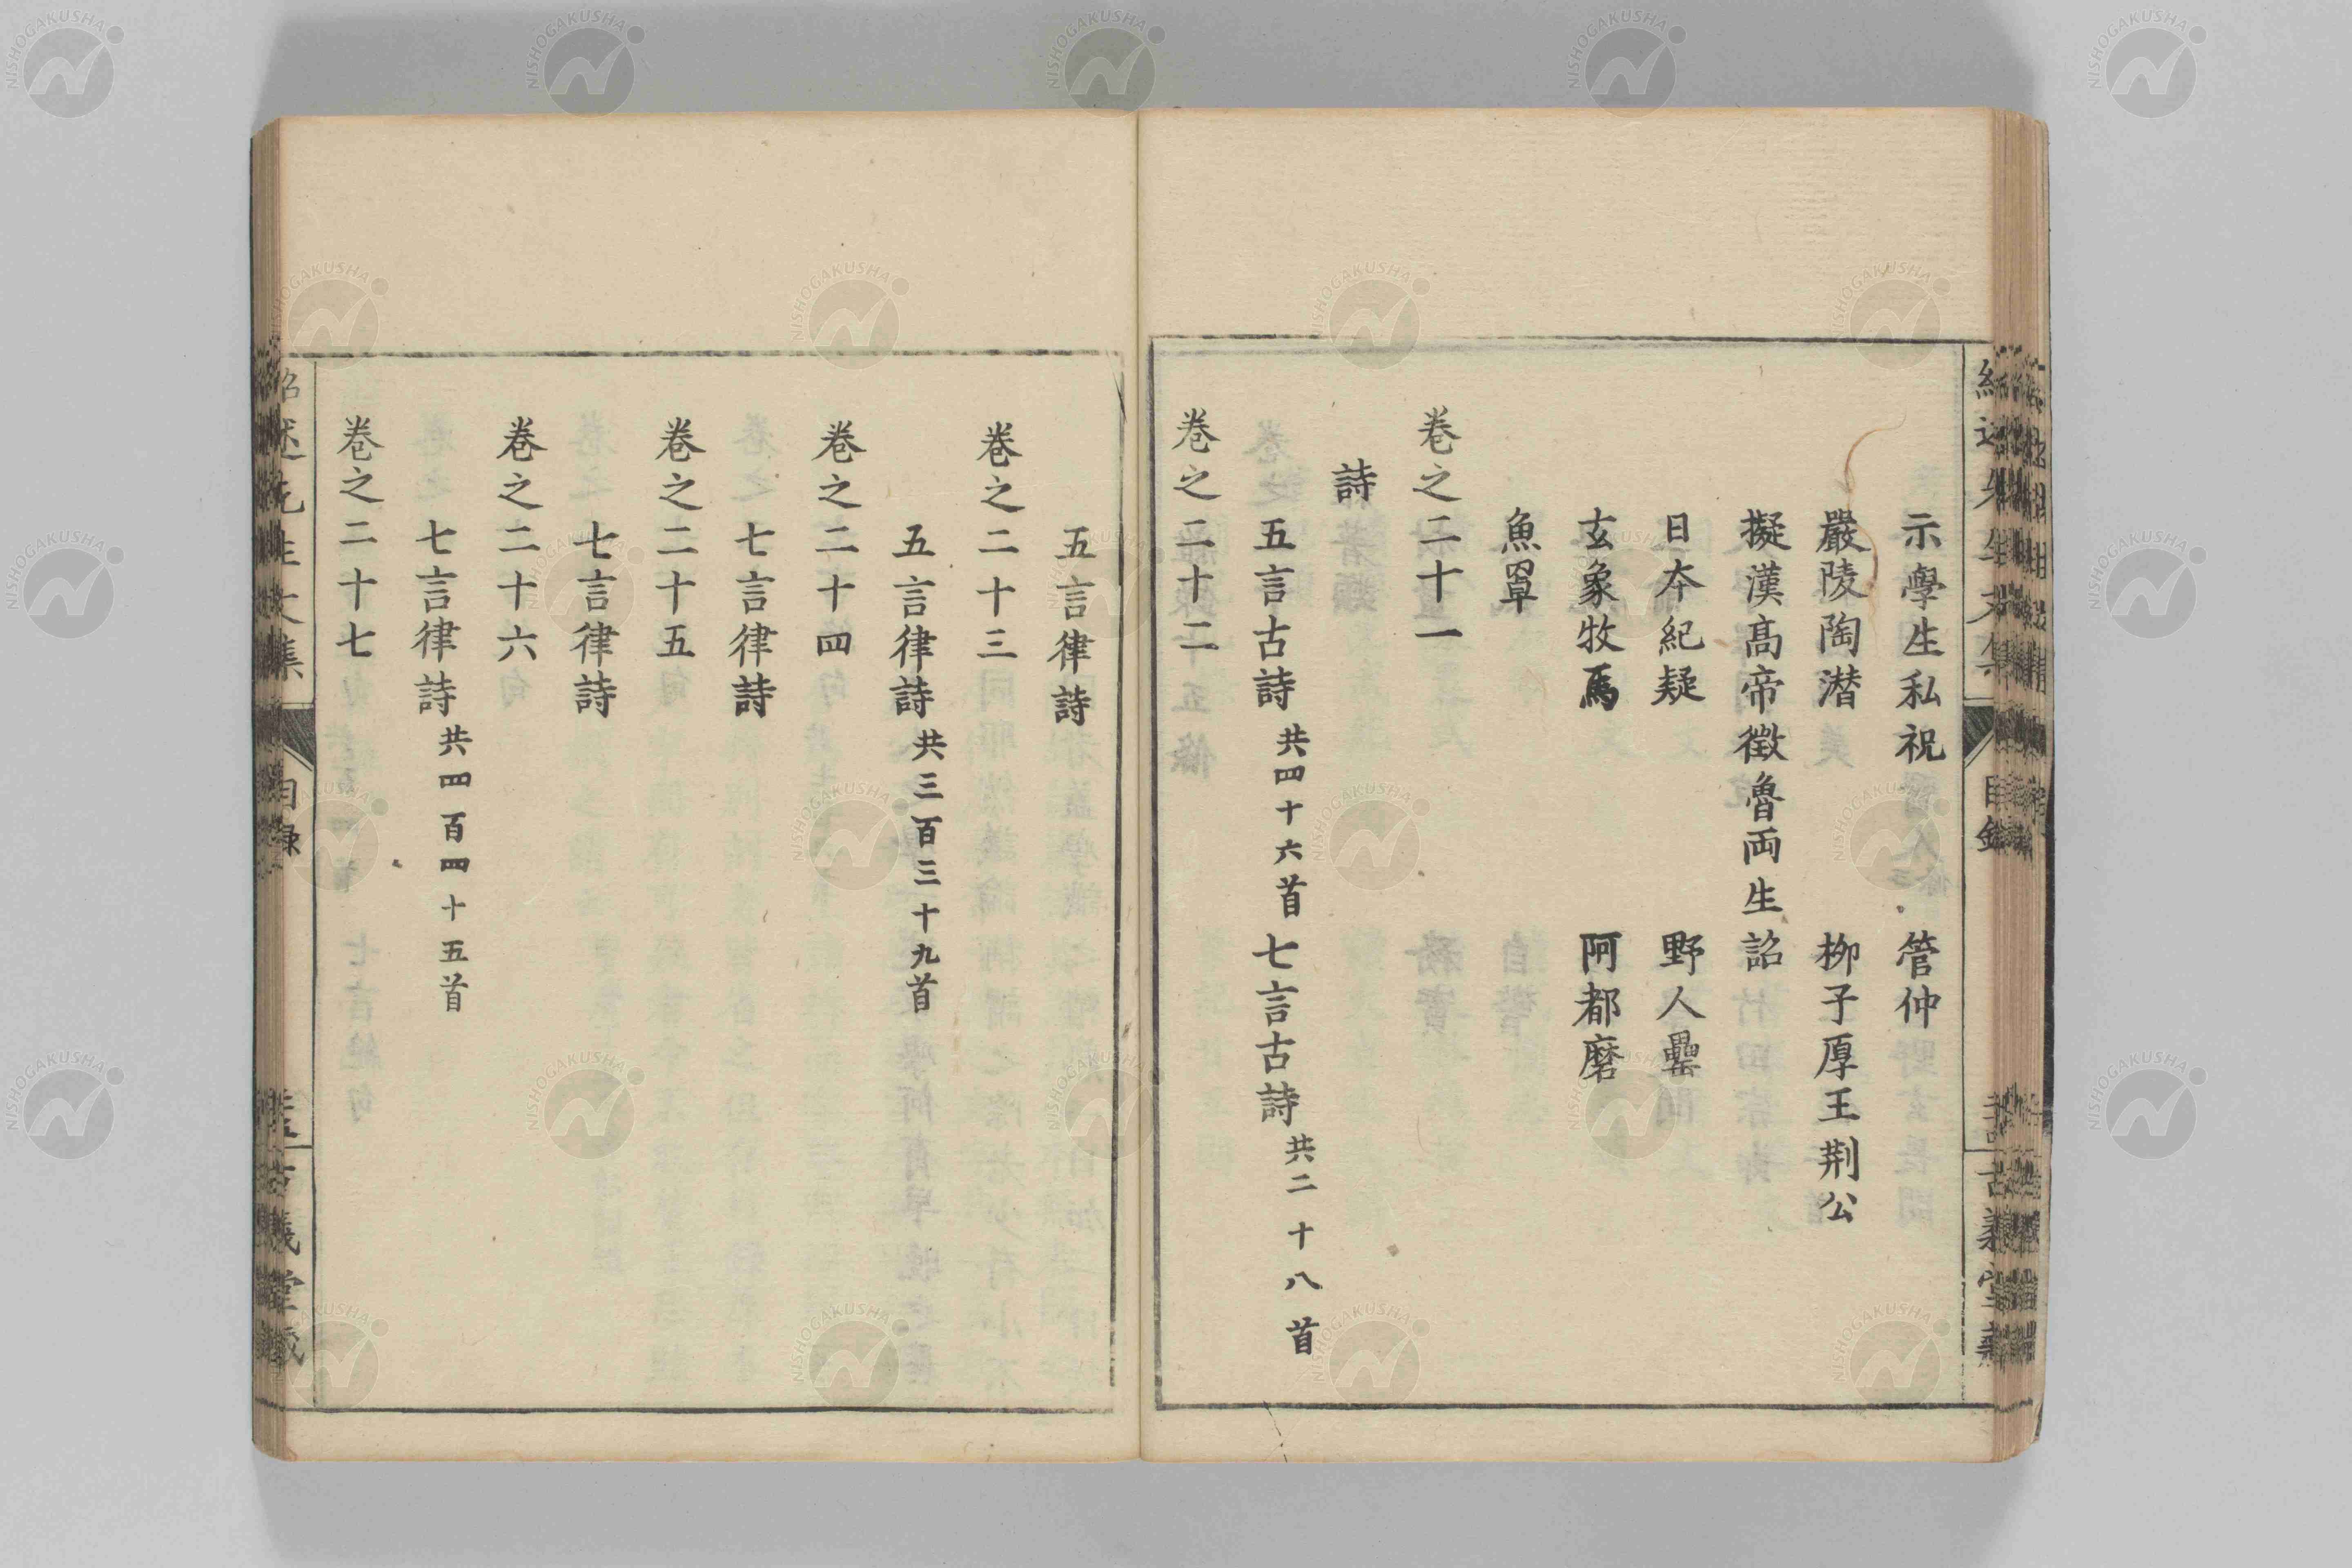 示學生私祝　管仲
嚴陵陶潛　柳子厚王荆公
擬漢髙帝徵魯両生詔
日夲紀疑　野人罍
玄象牧馬　阿都磨
魚罩
卷之二十一
詩
五言古詩共四十六首　七言古詩共二十八首
卷之二十二
五言律詩
卷之二十三
五言律詩共三百三十九首
卷之二十四
七言律詩
卷之二十五
七言律詩
卷之二十六
七言律詩共四百四十五首
卷之二十七
目録
NISHOGAKUSHA